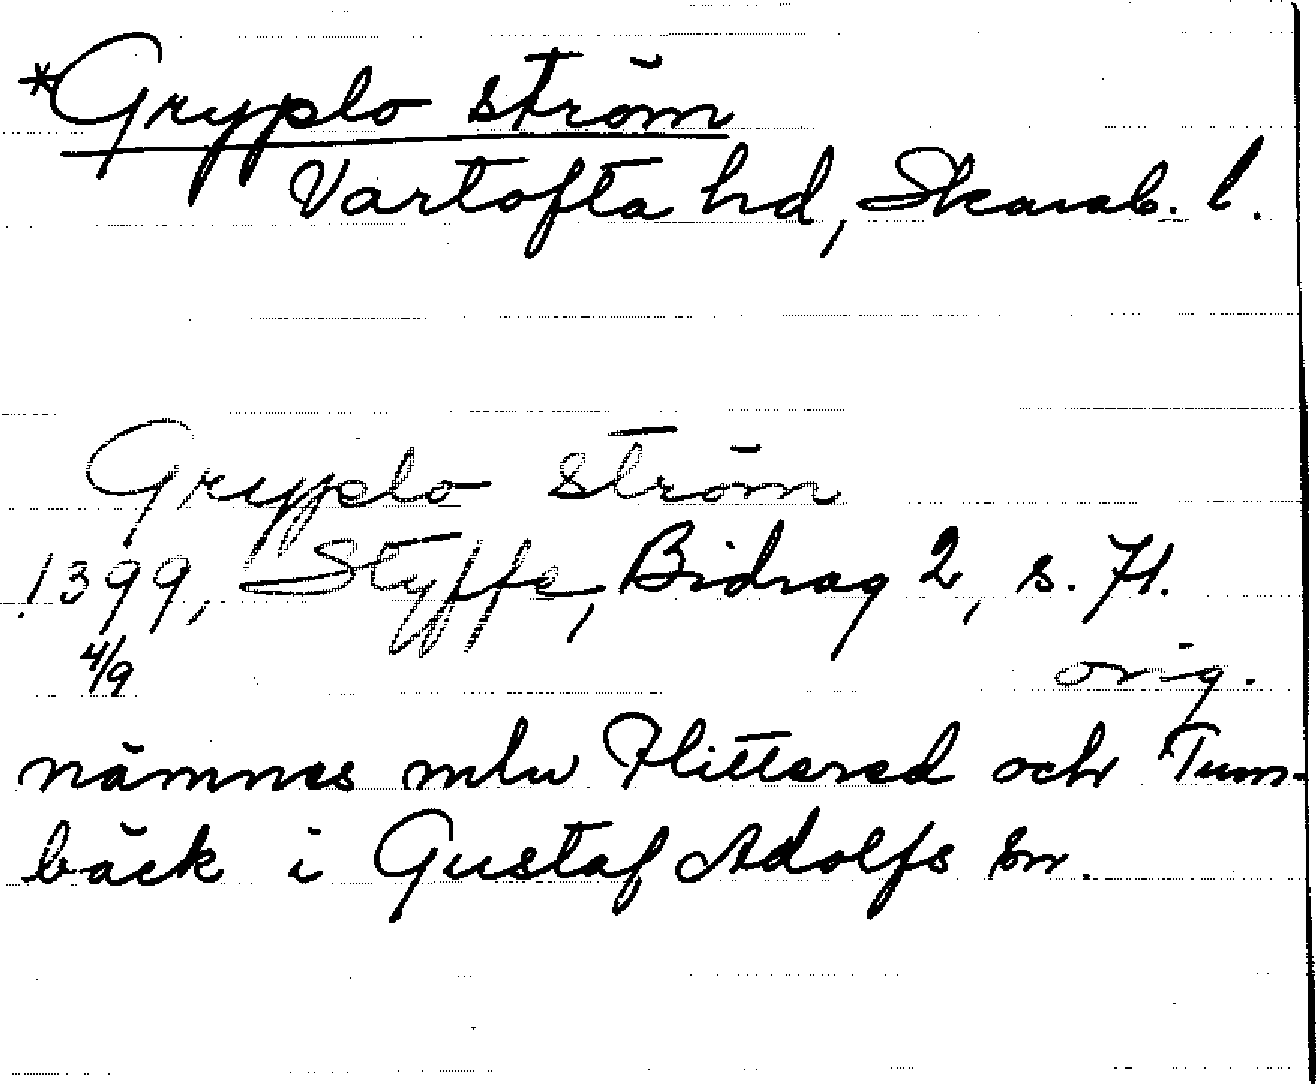 *Gryplo ström
Vartofta hd, Skarab. l.
Gryplo ström
1399, Styffe, Bidrag 2, s. 71.
4/9 orig.
nämnes mlw Flittered och Tum-
bäck i Gustaf Adolfs sn.